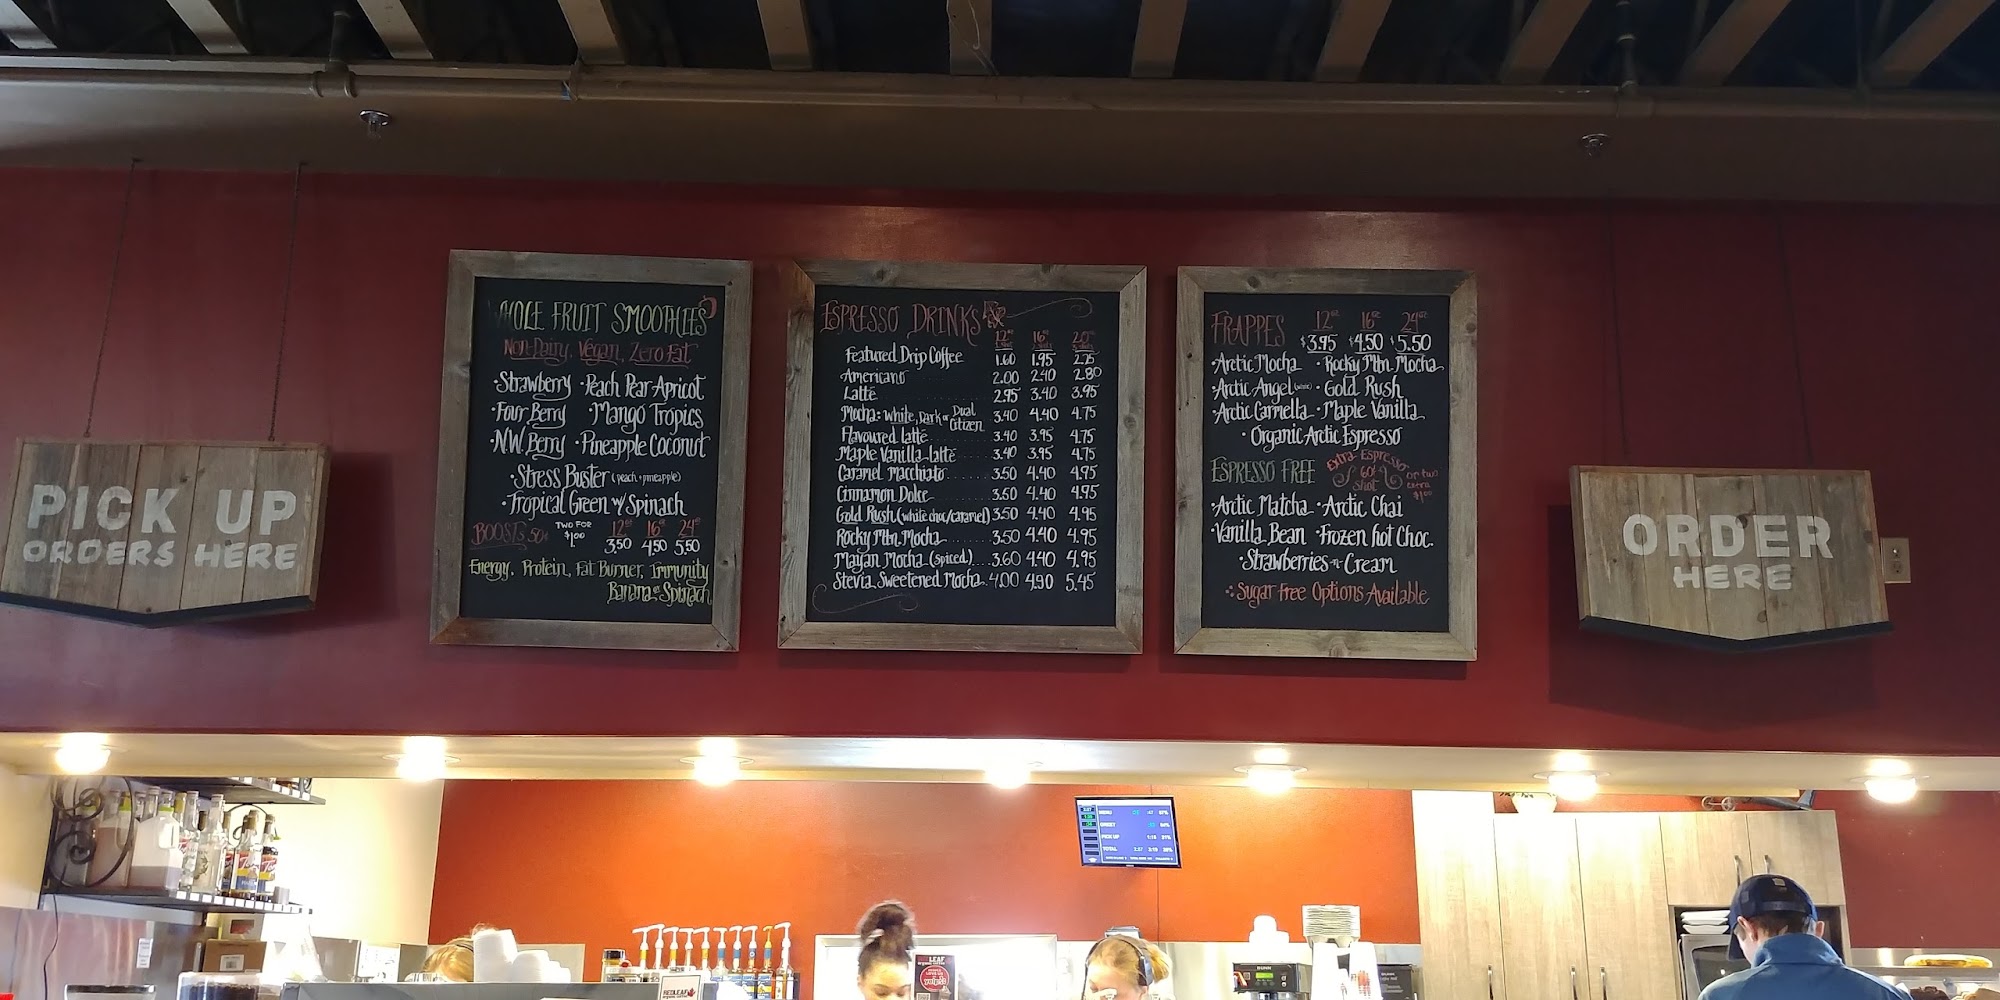 PICK UP
ORDERS HERE
WHOLE FRUIT SMOOTHIES
Non-Dairy, Vegan, Zero Fat
•Strawberry •Peach Pear Apricot
•Four Berry •Mango Tropics
•N.W. Berry •Pineapple Coconut
•Stress Buster (peach + pineapple)
•Tropical Green w/ Spinach
BOOSTS 50¢ TWO FOR $1.00 12oz 16oz 24oz
3.50 4.50 5.50
Energy, Protein, Fat Burner, Immunity
Banana or Spinach
ESPRESSO DRINKS
12oz 16oz 20oz
Featured Drip Coffee 1.60 1.95 2.25
Americano 2.00 2.40 2.80
Latté 2.95 3.40 3.95
Mocha: White, Dark or Dual Citizen 3.40 4.40 4.75
Flavoured latté 3.40 3.95 4.75
Maple Vanilla latté 3.40 3.95 4.75
Caramel Macchiato 3.50 4.40 4.95
Cinnamon Dolce 3.50 4.40 4.95
Gold Rush (white choc/caramel) 3.50 4.40 4.95
Rocky Mtn. Mocha 3.50 4.40 4.95
Mayan Mocha (spiced) 3.60 4.40 4.95
Stevia Sweetened Mocha 4.00 4.90 5.45
FRAPPES 12oz 16oz 24oz
$3.95 $4.50 $5.50
•Arctic Mocha •Rocky Mtn. Mocha
•Arctic Angel (white) •Gold Rush
•Arctic Carmella •Maple Vanilla
•Organic Arctic Espresso
ESPRESSO FREE
Extra Espresso
60¢ Shot
or two extra $1.00
•Arctic Matcha •Arctic Chai
•Vanilla Bean •Frozen hot Choc.
•Strawberries -n- Cream
Sugar Free Options Available
ORDER
HERE
MENU
GREET
PICK UP
TOTAL
LEAF
REDLEAF
BUNN